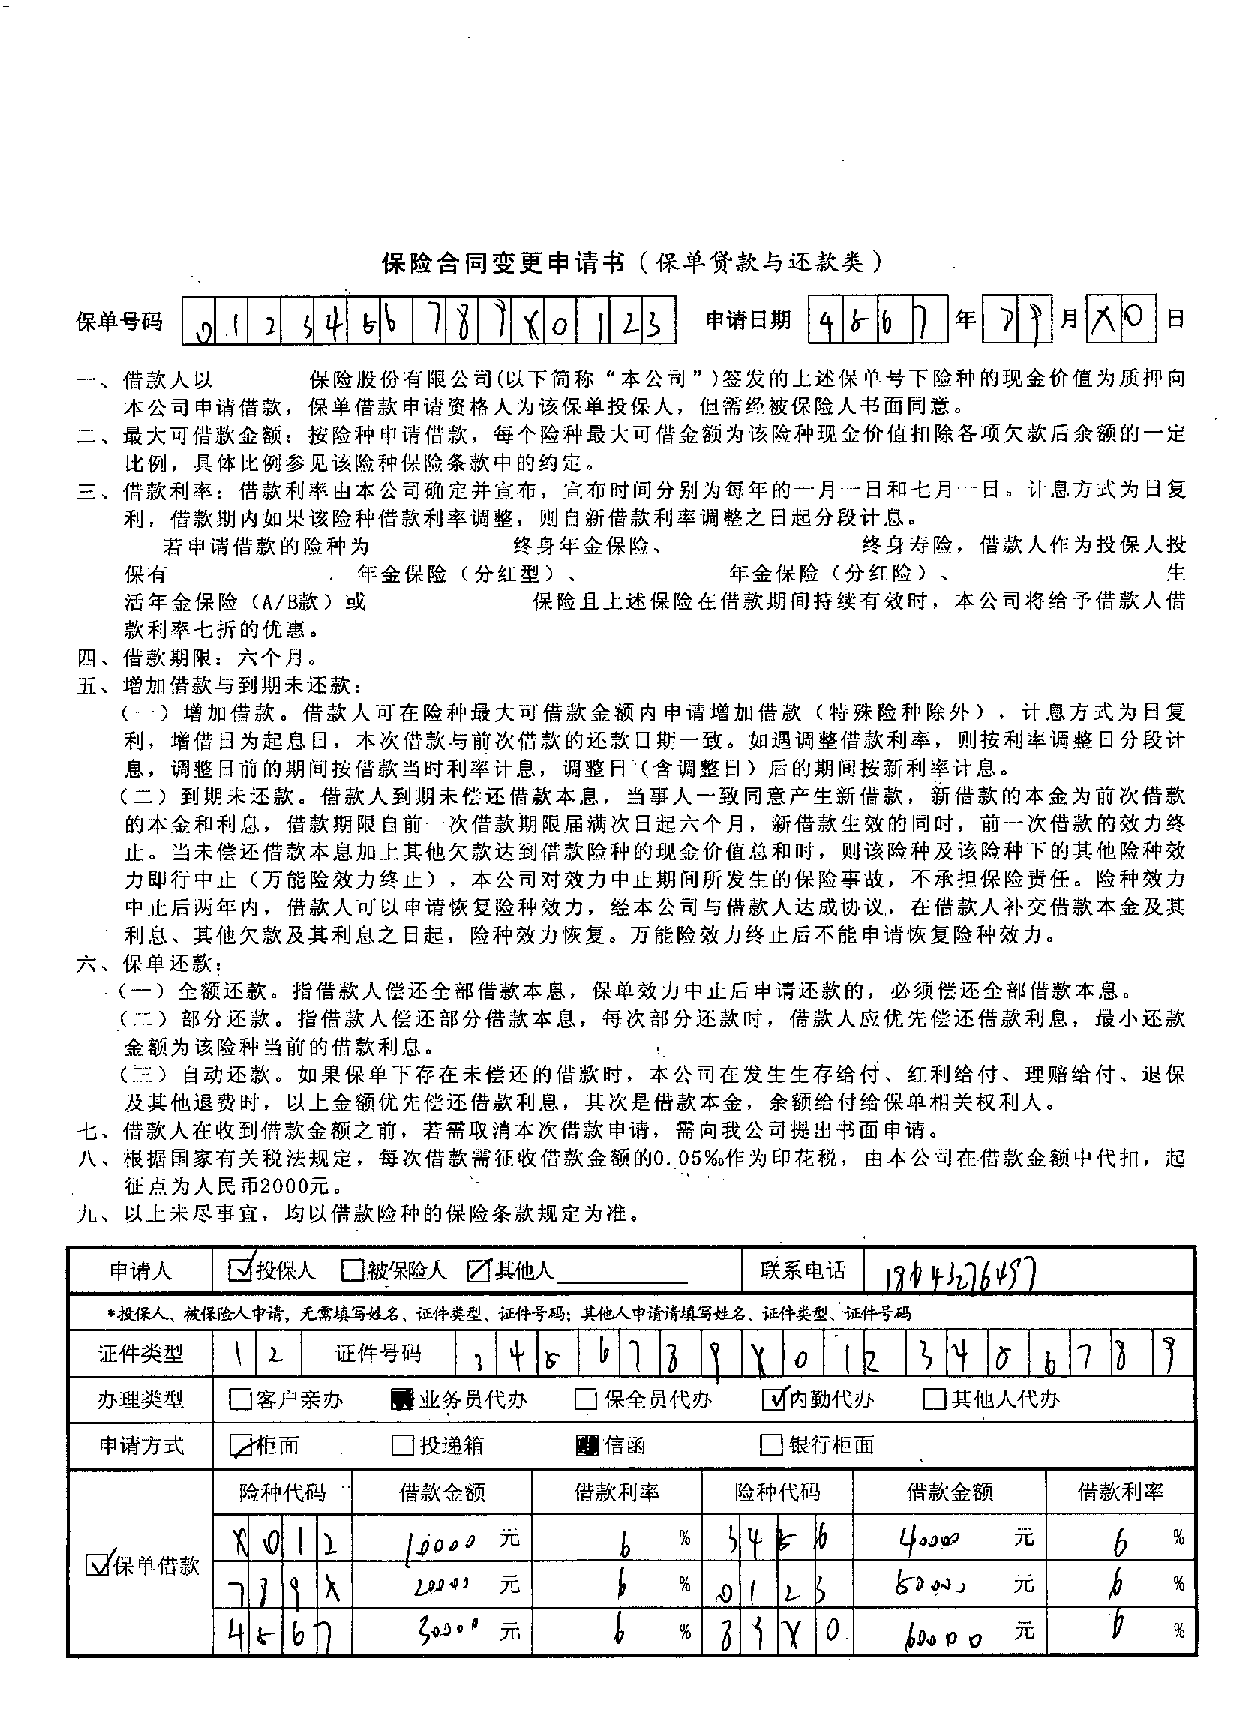 保险合同变更申请书（保单贷款与还款类）
保单号码 0 1 2 3 4 5 6 7 8 9 X 0 1 2 3 申请日期 4 5 6 7 年 7 9 月 X 0 日
一、借款人以 保险股份有限公司(以下简称“本公司”)签发的上述保单号下险种的现金价值为质押向
本公司申请借款，保单借款申请资格人为该保单投保人，但需经被保险人书面同意。
二、最大可借款金额：按险种申请借款，每个险种最大可借金额为该险种现金价值扣除各项欠款后余额的一定
比例，具体比例参见该险种保险条款中的约定。
三、借款利率：借款利率由本公司确定并宣布，宣布时间分别为每年的一月一日和七月一日。计息方式为日复
利，借款期内如果该险种借款利率调整，则自新借款利率调整之日起分段计息。
若申请借款的险种为 终身年金保险、 终身寿险，借款人作为投保人投
保有 年金保险（分红型）、 年金保险（分红险）、 生
活年金保险（A/B款）或 保险且上述保险在借款期间持续有效时，本公司将给予借款人借
款利率七折的优惠。
四、借款期限：六个月。
五、增加借款与到期未还款：
（一）增加借款。借款人可在险种最大可借款金额内申请增加借款（特殊险种除外），计息方式为日复
利，增借日为起息日，本次借款与前次借款的还款日期一致。如遇调整借款利率，则按利率调整日分段计
息，调整日前的期间按借款当时利率计息，调整日（含调整日）后的期间按新利率计息。
（二）到期未还款。借款人到期未偿还借款本息，当事人一致同意产生新借款，新借款的本金为前次借款
的本金和利息，借款期限自前一次借款期限届满次日起六个月，新借款生效的同时，前一次借款的效力终
止。当未偿还借款本息加上其他欠款达到借款险种的现金价值总和时，则该险种及该险种下的其他险种效
力即行中止（万能险效力终止），本公司对效力中止期间所发生的保险事故，不承担保险责任。险种效力
中止后两年内，借款人可以申请恢复险种效力，经本公司与借款人达成协议，在借款人补交借款本金及其
利息、其他欠款及其利息之日起，险种效力恢复。万能险效力终止后不能申请恢复险种效力。
六、保单还款：
（一）全额还款。指借款人偿还全部借款本息，保单效力中止后申请还款的，必须偿还全部借款本息。
（二）部分还款。指借款人偿还部分借款本息，每次部分还款时，借款人应优先偿还借款利息，最小还款
金额为该险种当前的借款利息。
（三）自动还款。如果保单下存在未偿还的借款时，本公司在发生生存给付、红利给付、理赔给付、退保
及其他退费时，以上金额优先偿还借款利息，其次是借款本金，余额给付给保单相关权利人。
七、借款人在收到借款金额之前，若需取消本次借款申请，需向我公司提出书面申请。
八、根据国家有关税法规定，每次借款需征收借款金额的0.05‰作为印花税，由本公司在借款金额中代扣，起
征点为人民币2000元。
九、以上未尽事宜，均以借款险种的保险条款规定为准。
申请人 投保人 被保险人 其他人 联系电话
*投保人、被保险人申请，无需填写姓名、证件类型、证件号码；其他人申请请填写姓名、证件类型、证件号码
证件类型 1 2 证件号码 3 4 5 6 7 8 9 X 0 1 2 3 4 5 6 7 8 9
办理类型 客户亲办 业务员代办 保全员代办 内勤代办 其他人代办
申请方式 柜面 投递箱 信函 银行柜面
险种代码 借款金额 借款利率 险种代码 借款金额 借款利率
X 0 1 2 10000 元 6 % 3 4 5 6 40000 元 6 %
保单借款
7 8 9 X 20000 元 6 % 0 1 2 3 50000 元 6 %
4 5 6 7 30000 元 6 % 8 9 X 0 60000 元 6 %